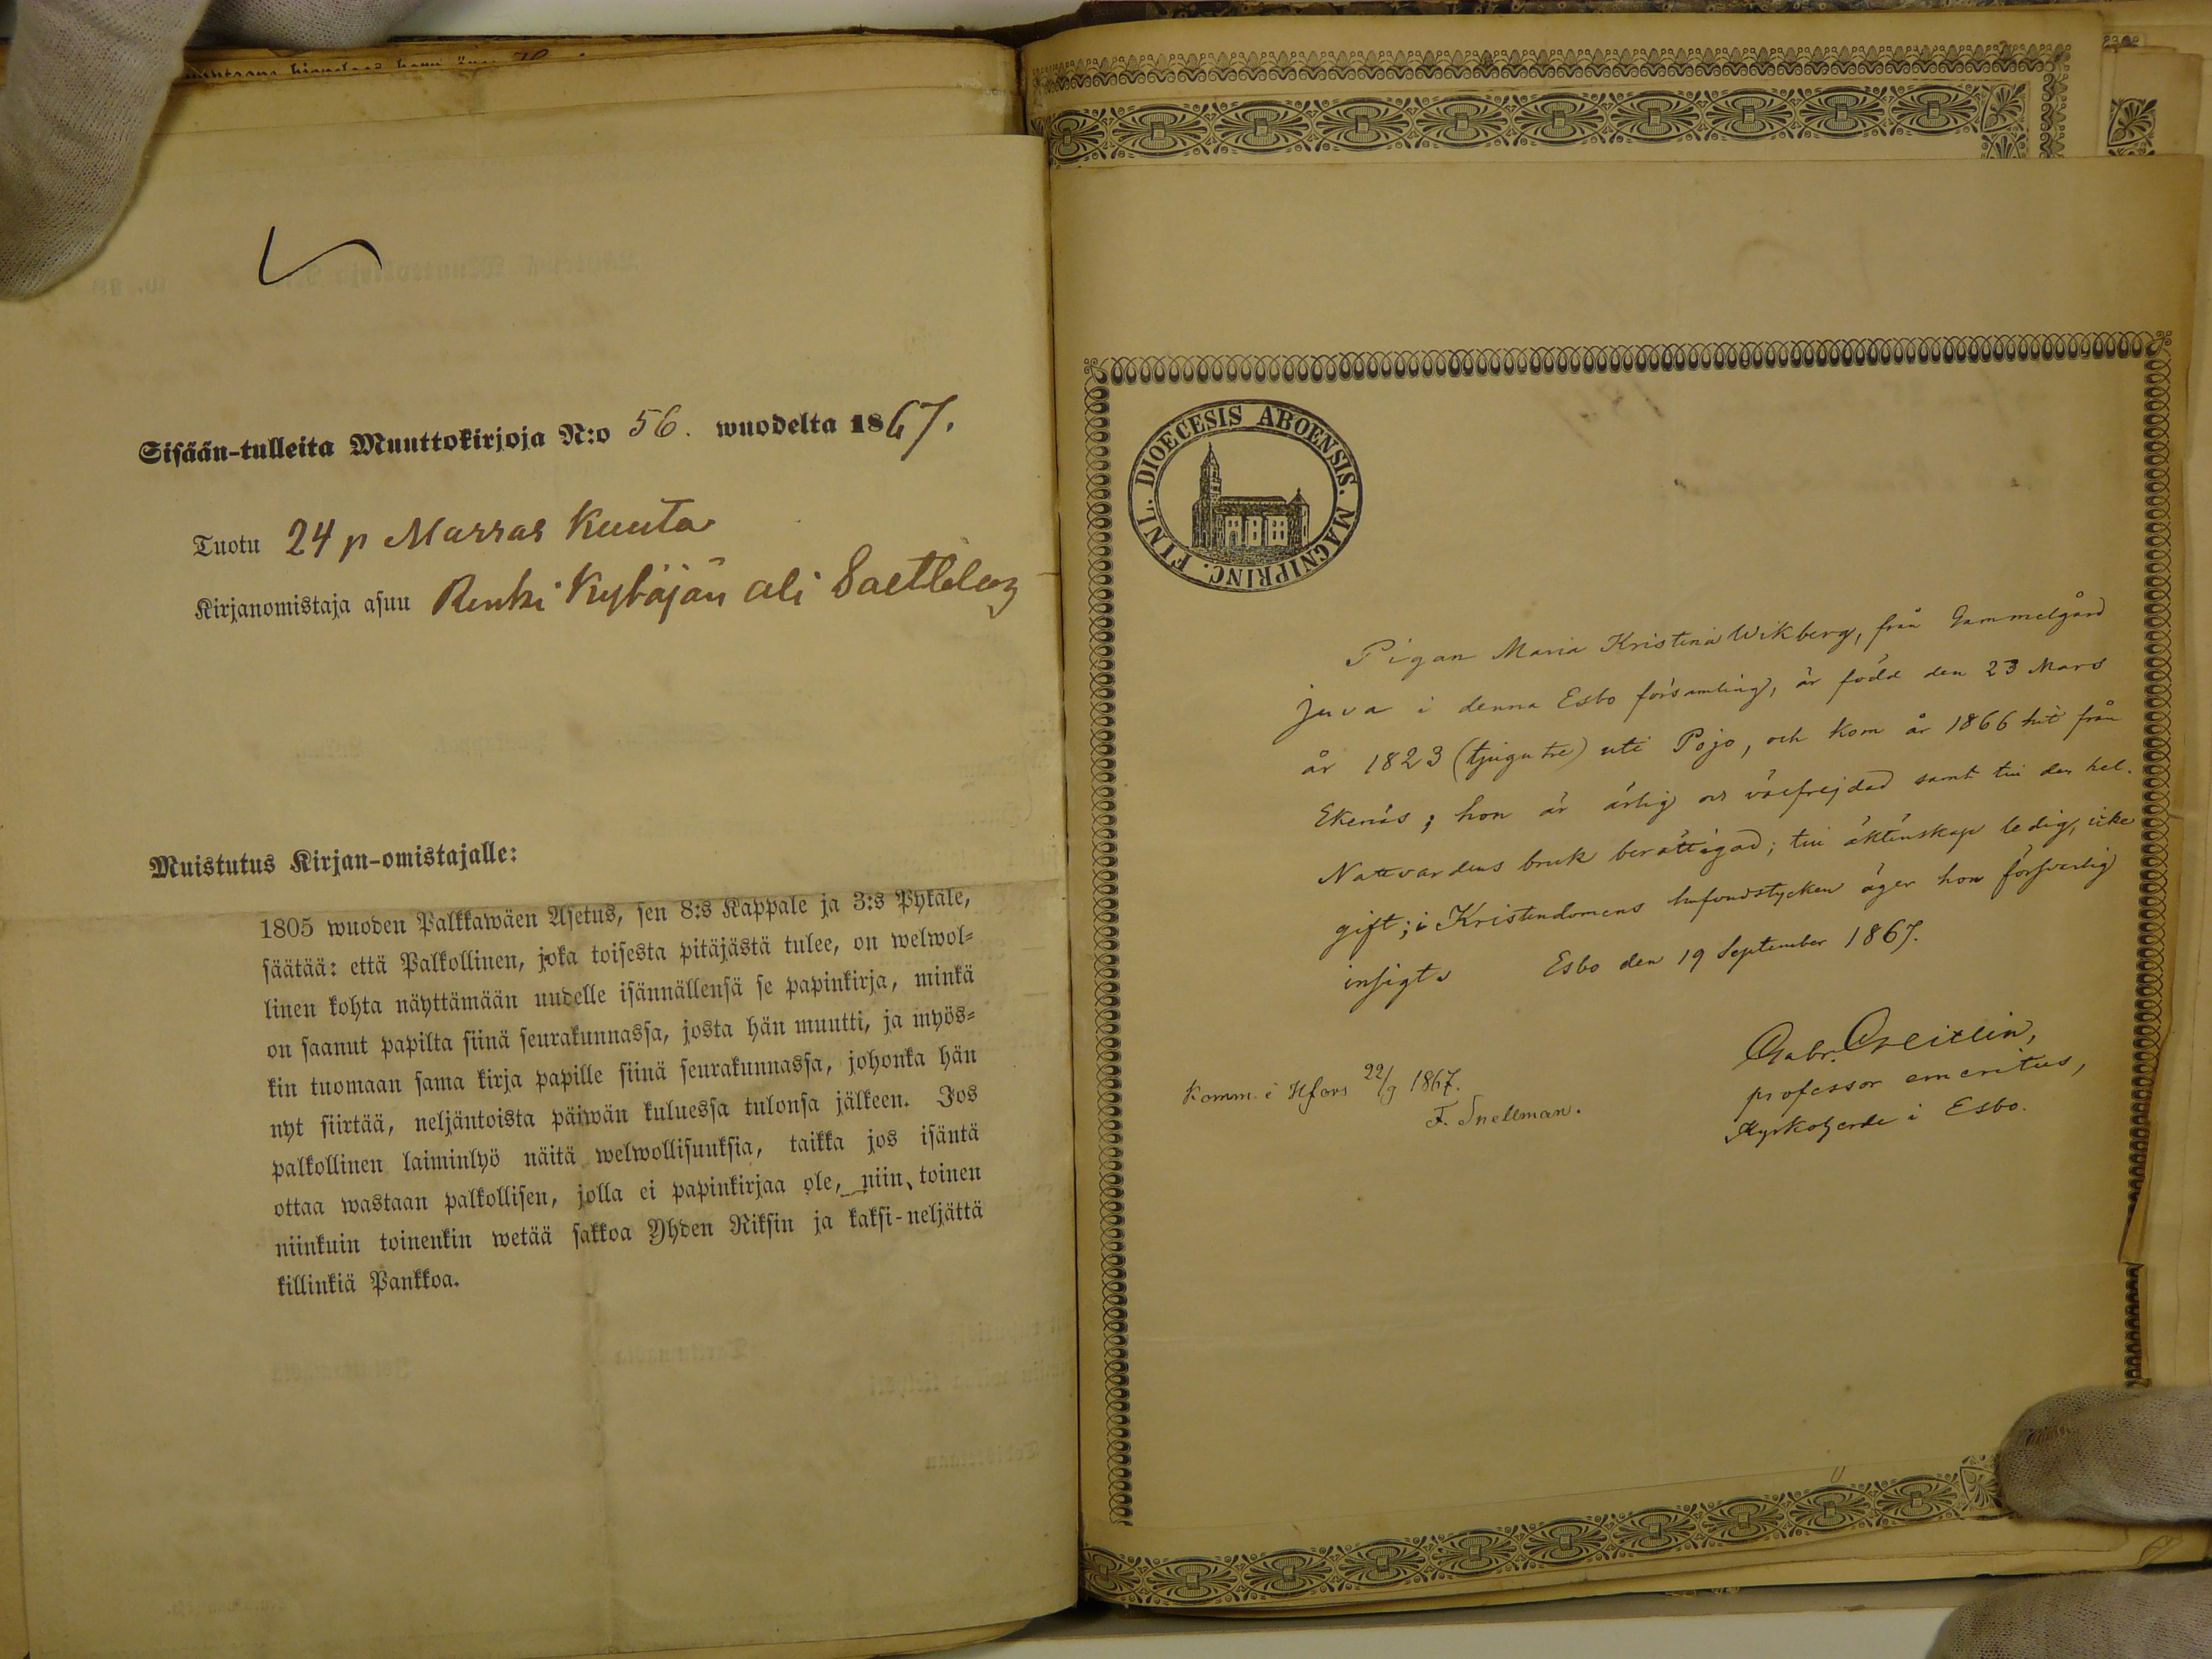 Sisään-tulleita Muuttokirjoja N:o 56. wuodelta 1867.
Tuotu 24 p Marras Kuuta
Kirjanomistaja asuu Renki Kytäjän ali
Muistutus Kirjan-omistajalle:
1805 wuoden Palkkawäen Asetus, sen 8:s Kappale ja 3:s Pykäle,
säätää: että Palkollinen, joka toisesta pitäjästä tulee, on welwol-
linen kohta näyttämään uudelle isännällensä se papinkirja, minkä
on saanut papilta siinä seurakunnassa, josta hän muutti, ja myös-
kin tuomaan sama kirja papille siinä seurakunnassa, johonka hän
nyt siirtää, neljäntoista päiwän kuluessa tulonsa jälkeen. Jos
palkollinen laiminlyö näitä welwollisuuksia, taikka jos isäntä
ottaa wastaan palkollisen, jolla ei papinkirjaa ole, niin toinen
niinkuin toinenkin wetää sakkoa Yhden Riksin ja kaksi-neljättä
killinkiä Pankkoa.
FINL. DIOECESIS ABOENSIS. MAGNIPRINC.
Pigan Maria Kristina Wikberg, från Gammelgård
Juva i denna Esbo församling, är född den 23 Mars
år 1823 (tjugu tre) uti Pojo, och kom år 1866 hit från
Ekenäs; hon är ärlig och välfrejdad samt till den hel.
Nattvardens bruk berättigad; till äktenskap ledig, icke
gift; i Kristendomens hufvudstycken äger hon försvarlig
insigt. Esbo den 19 September 1867.
Gabr. Geitlin,
professor emeritus,
Kyrkoherde i Esbo.
Komm. i Hfors 22/9 1867.
F. Snellman.